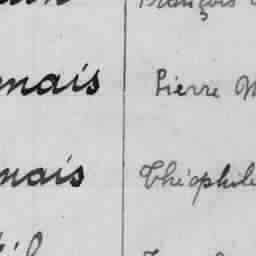 François
mais Pierre M
mais Théophile